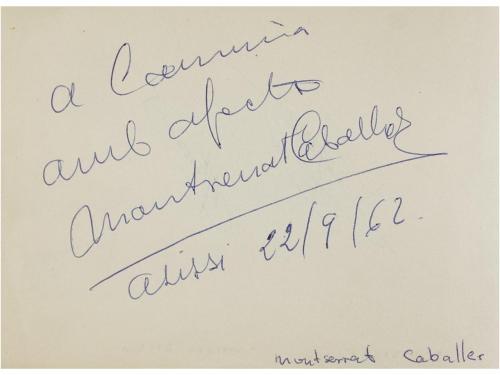 a Carmiña
amb afecto
Montserrat Caballé
asissi 22/9/62.
montserrat Caballer